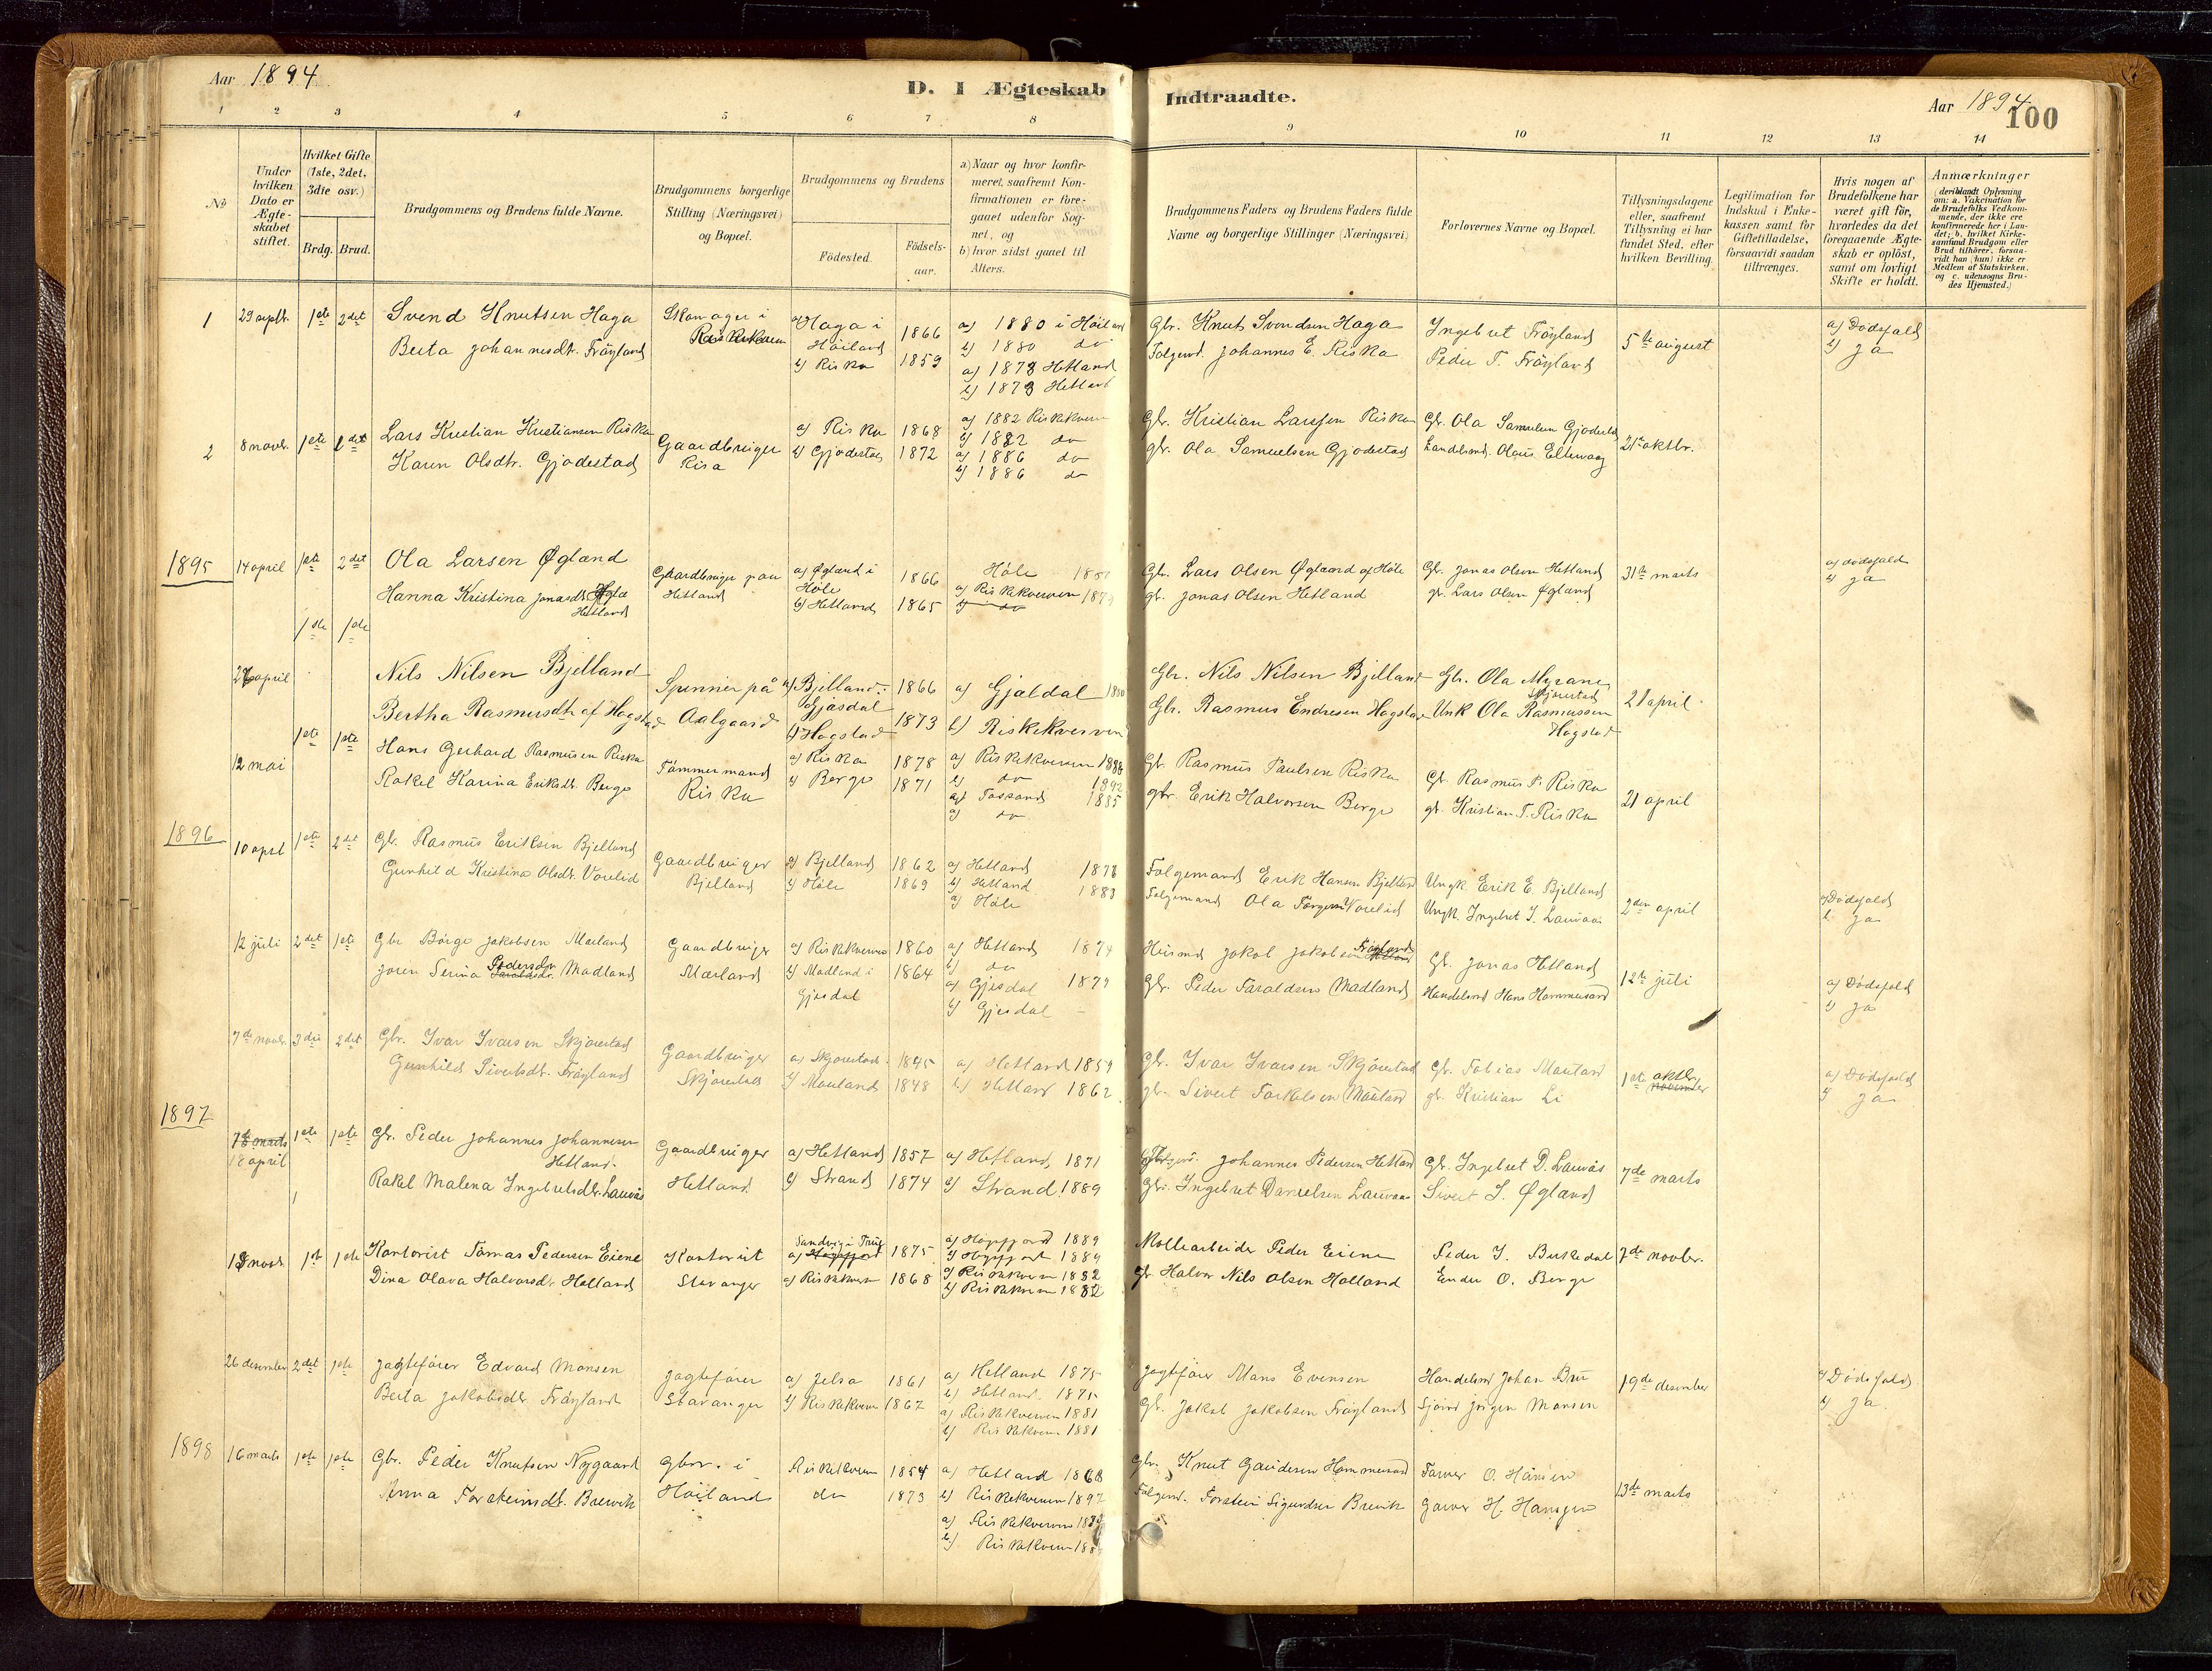 Aar 1894
D. I Ægteskab Indtraadte.
Aar 1894
100
1 2 3 4 5 6 7 8 9 10 11 12 13 14
No
Under hvilken Dato er Ægteskabet stiftet.
Hvilket Gifte (1ste, 2det, 3die osv.)
Brdg. Brud.
Brudgommens og Brudens fulde Navne.
Brudgommens borgerlige Stilling (Næringsvei) og Bopæl.
Brudgommens og Brudens
Fødested.
Fødsels-aar.
a) Naar og hvor konfirmeret, saafremt Konfirmationen er foregaaet udenfor Sognet, og
b) hvor sidst gaaet til Alters.
Brudgommens Faders og Brudens Faders fulde Navne og borgerlige Stillinger (Næringsvei)
Forlovernes Navne og Bopæl.
Tillysningsdagene eller, saafremt Tillysning ei har fundet Sted, efter hvilken Bevilling.
Legitimation for Indskud i Enkekassen samt for Giftetilladelse, forsaavidt saadan tiltrænges.
Hvis nogen af Brudefolkene har været gift før, hvorledes da det foregaaende Ægteskab er opløst, samt om lovligt Skifte er holdt.
Anmærkninger (deriblandt Oplysning om: a. Vakcination for de Brudefolks Vedkommende, der ikke ere konfirmerede her i Landet; b. hvilket Kirkesamfund Brudgom eller Brud tilhører, forsaavidt han (hun) ikke er Medlem af Statskirken, og c. udensogns Brudes Hjemsted.)
1 29 septb. 1ste 2det Svend Knutsen Haga Skomager i a) Haga i 1866 a) 1880 i Høiland Gbr. Knut Svendsen Haga Ingebret Frøyland 5te august a) Dødsfald
Berta Johannesdtr. Frøyland Riskekvern Høiland b) 1880 do Folgemd. Johannes E. Riska Peder T. Frøyland b) ja
b) Riska 1859 a) 1873 Hetland
b) 1873 Hetland
2 8 novb. 1ste det Lars Kristian Kristiansen Riska Gaardbruger a) Riska 1868 a) 1882 Riskekvern Gbr. Kristian Larssen Riska Gbr. Ola Samuelsen Gjodestad 21de oktbr.
Karen Olsdtr. Gjodestad Risa b) Gjodestad 1872 b) 1882 do gbr. Ola Samuelsen Gjodestad Handelsmd. Olaus Eltervaag
a) 1886 do
b) 1886 do
1895 14 april 1ste 2det Ola Larsen Øgland Gaardbruger paa a) Øgland i 1866 Høle Gbr. Lars Olsen Øgland af Høle Gbr. Jonas Olsen Hetland 31te marts a) dødsfald
Hanna Kristina Jonasdtr. Hetland Hetland Høle a) Riskekvernen gb. Jonas Olsen Hetland gb. Lars Olsen Øgland b) ja
b) Hetland 1865 b) do
1ste 1ste
april Nils Nilsen Bjelland Spinner på a) Bjelland i 1866 a) Gjæsdal Gbr. Nils Nilsen Bjelland Gbr. Ola Myrane 21 april
Bertha Rasmusdtr af Hogstad Aalgaard Gjæsdal Skjørestad
b) Hogstad 1873 b) Riskekvernen Gbr. Rasmus Endresen Hogstad Unk Ola Rasmussen Hogstad
12 mai 1ste 1ste Hans Gerhard Rasmussen Riska Tømmermand a) Riska 1878 a) Riskekvernen Gb. Rasmus Paulsen Riska Gb. Rasmus P. Riska 21 april
Rakel Karina Eriksdtr. Berge Riska b) Berge 1871 b) do 1892 gbr. Erik Halvorsen Berge gb. Kristian T. Riska
a) Fossand 1885
b) do
1896 10 april 1ste 2det Gbr. Rasmus Eriksen Bjelland Gaardbruger a) Bjelland 1862 a) Hetland Folgemand Erik Hansen Bjelland Ungk. Erik E. Bjelland 2den april a) Dødsfald
Gunhild Kristina Olsdtr. Vorelid Bjelland b) Høle 1869 b) Hetland 1883 Folgemand Ola Vorelid Ungk. Ingebret I. Lauvaas b. ja
a) Høle
12 juli 2det 1ste Gbr Børge Jakobsen Mæland Gaardbruger a) Riskekvernen 1860 a) Hetland 1874 Husmd Jakob Jakobsen Frøyland Gb. Jonas Hetland 12te juli a) Dødsfald
Joren Serina Pedersdtr. Madland Mæland b) Madland i 1864 b) do Gbr. Peder Taraldsen Madland Handelsmd Hans Hommersand b) ja
Gjesdal a) Gjesdal 1879
b) Gjesdal
7de novb. 3die 2det Gbr. Ivar Ivarsen Skjørestad Gaardbruger a) Skjørestad 1845 a) Hetland 1859 Gbr. Ivar Ivarsen Skjørestad Gbr. Tobias Mauland 1ste oktbr. a) Dødsfald
Gunhild Sivertsdtr. Frøyland Skjørestad b) Mauland 1848 b) Hetland 1862 gbr. Sivert Torkelsen Mauland gb. Kristian Li b) ja
1897
7de marts 1ste 1ste Gbr. Peder Johannes Johannesen Gaardbruger a) Hetland 1857 a) Hetland 1871 Johannes Pedersen Hetland Gbr. Ingebret D. Lauvås 7de marts
18 april Hetland Hetland b) Strand 1874 b) Strand 1889 Gbr. Ingebret Danielsen Lauvaas Sivert S. Øgland
Rakel Malena Ingebretsdtr. Lauvås
novb 1ste 1ste Kontorist Tomas Pedersen Eiene Kontorist Sandvig i 1875 a) Høgsfjord 1889 Møllearbeider Peder Eiene Peder I. Birkedal 7de novbr.
Dina Olava Halvorsdtr. Holland Stavanger a) Høgsfjord b) Høgsfjord 1889 gb. Halvor Nils Olsen Holland Endre O. Berge
a) Riskekvern 1868 a) Riskekvern 1882
b) Riskekvern 1882
26 desember 2det 1ste Jagtefører Edvard Monsen Jagtefører a) Jelsa 1861 a) Hetland 1875 Jagtefører Mons Evensen Handelsmd Johan Bru 19de desember a) Dødsfald
Berta Jakobsdtr Frøyland Stavanger b) Riskekvern 1867 b) Hetland 1875 Gbr. Jakob Jakobsen Frøyland Sjømd Jørgen Monsen b) ja
a) Riskekvernen 1881
b) Riskekvern 1881
1898 16 marts 1ste 1ste Gbr. Peder Knutsen Nygaard gbr. i Riskekvern 1854 a) Hetland 1868 gbr. Knut Gaudesen Hommersand Farver O. Hansen 13de marts
Anna Torsteinsdtr. Brevik Høiland do 1873 b) Riskekvernen 1897 Folgemd. Torstein Sigurdsen Brevik Garver H. Hansen
a) Riskekvernen
b) Riskekvern